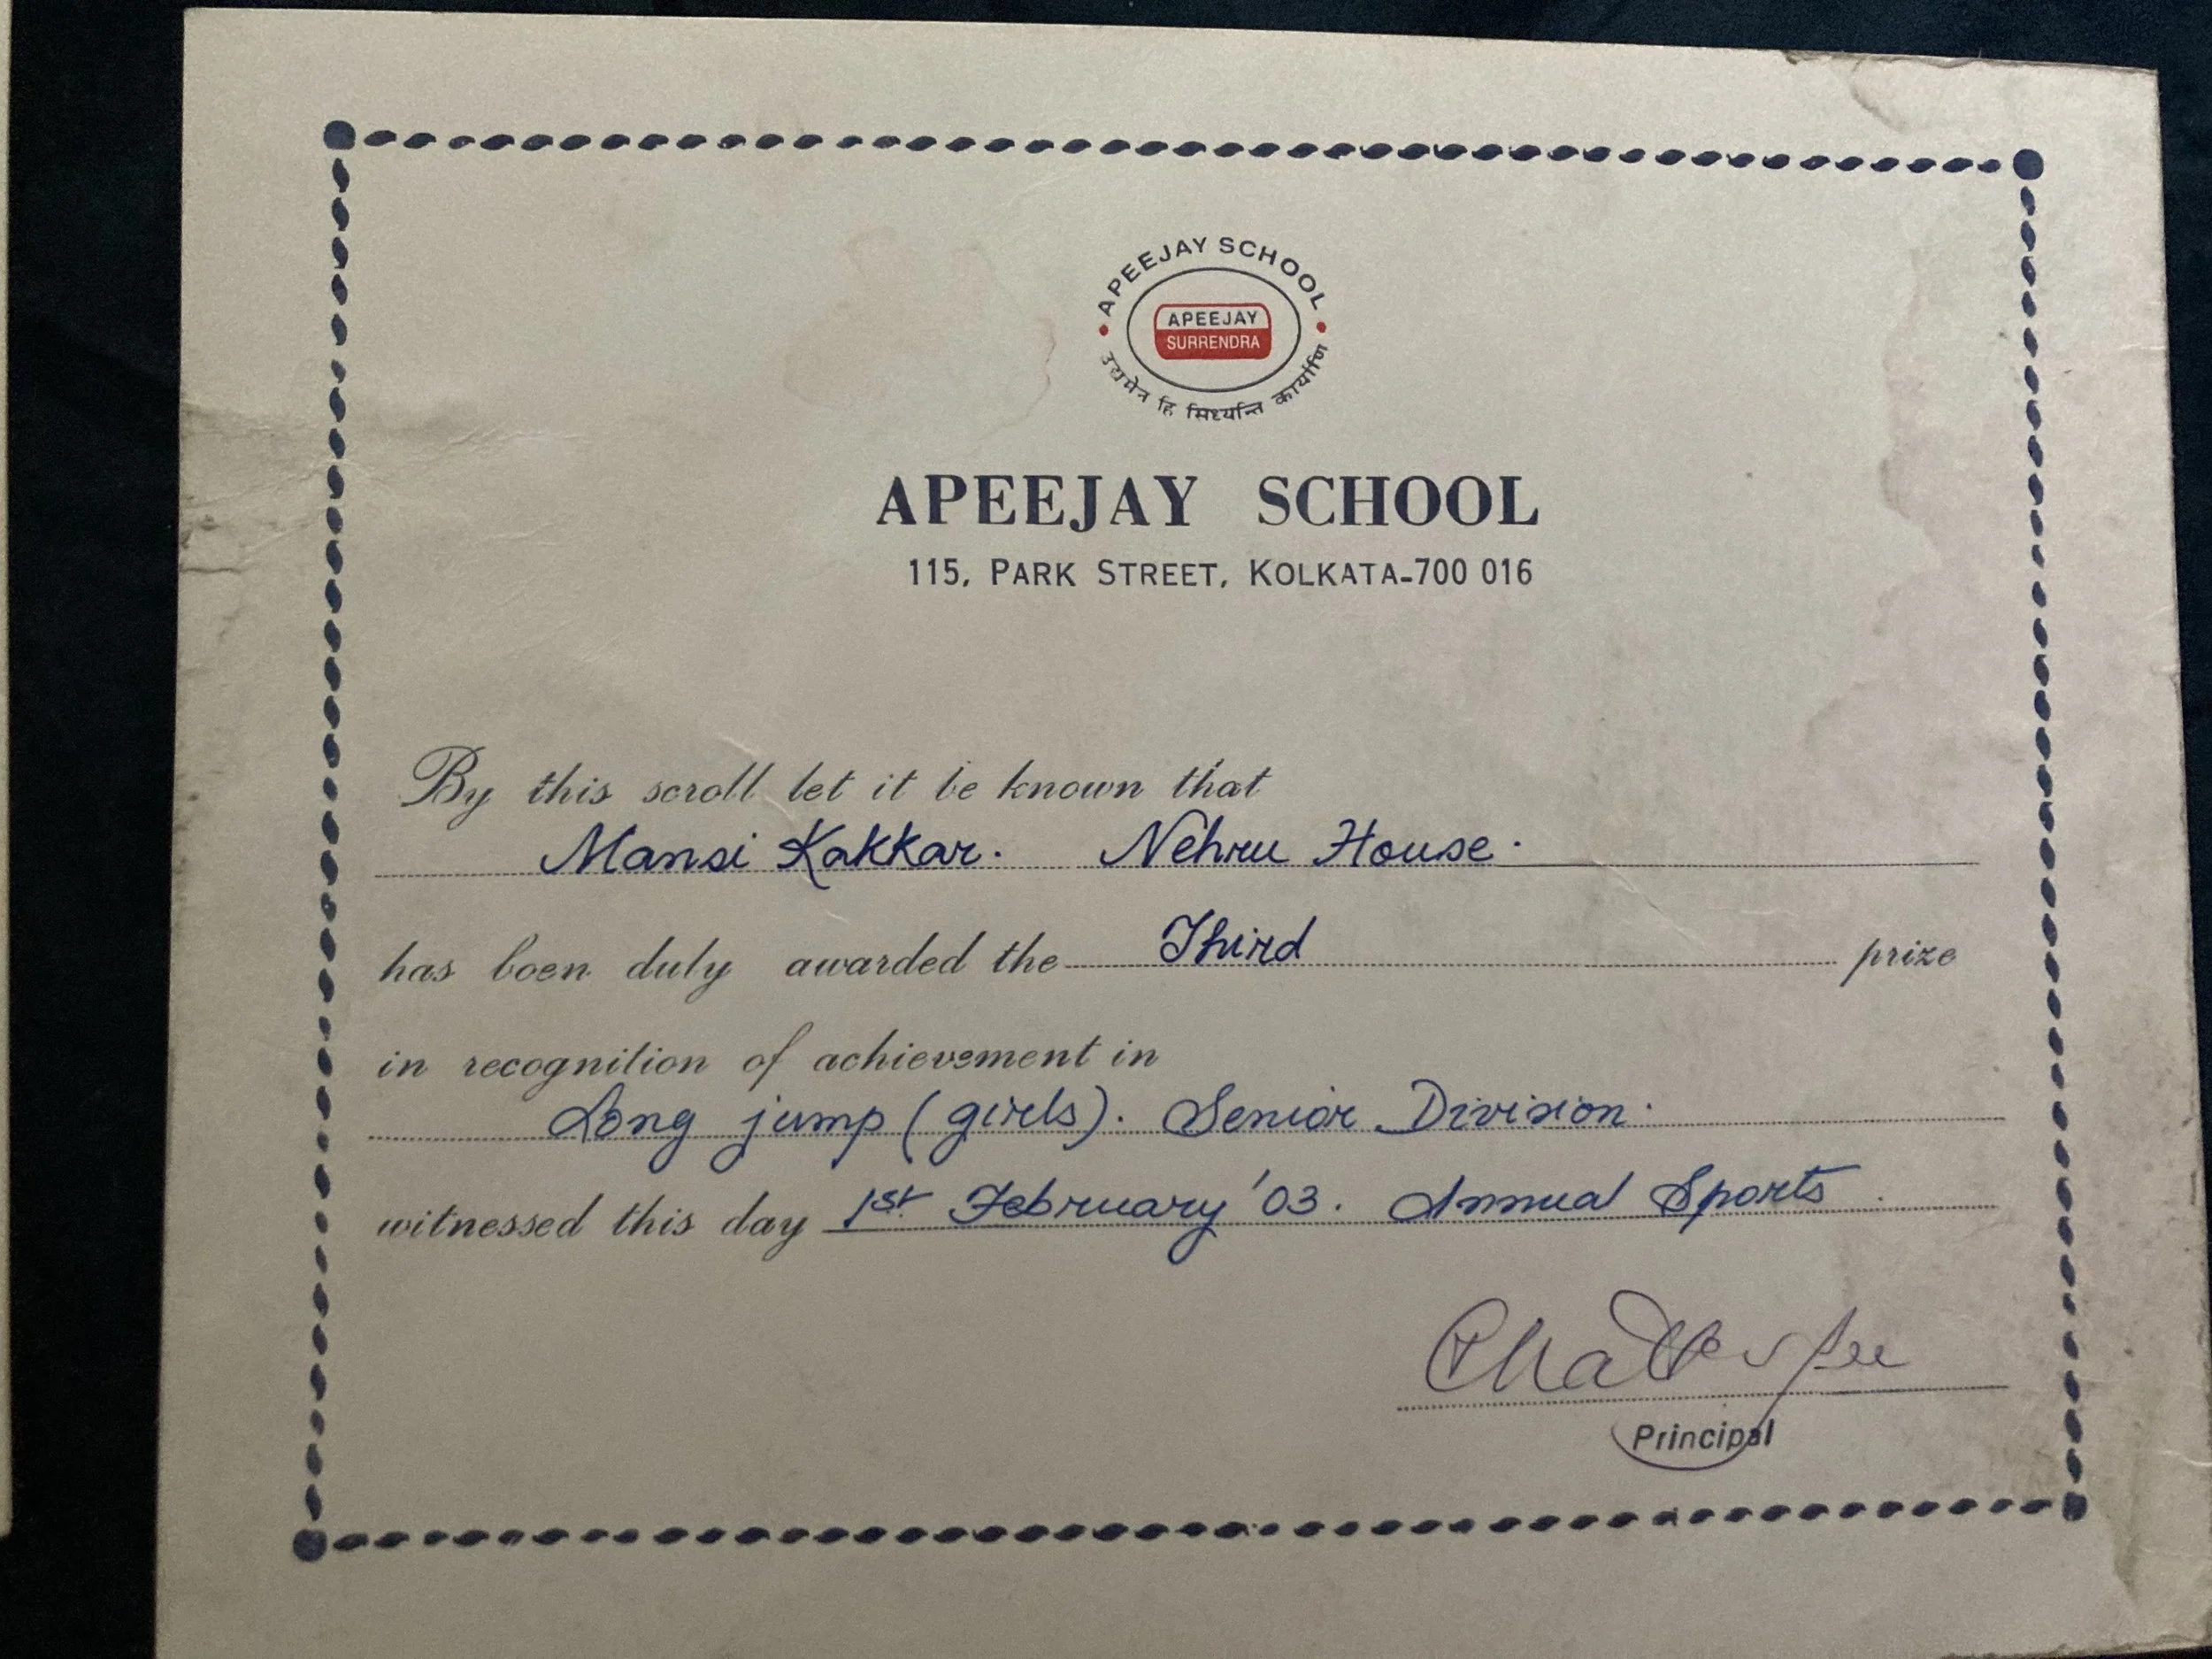 APEEJAY SCHOOL
APEEJAY
SURRENDRA
उद्यमेन हि सिध्यन्ति कार्याणि
APEEJAY SCHOOL
115, PARK STREET, KOLKATA-700 016
By this scroll let it be known that
Mansi Kakkar. Nehru House.
has been duly awarded the Third prize
in recognition of achievement in
Long jump (girls). Senior Division.
witnessed this day 1st February '03. Annual Sports.
Principal